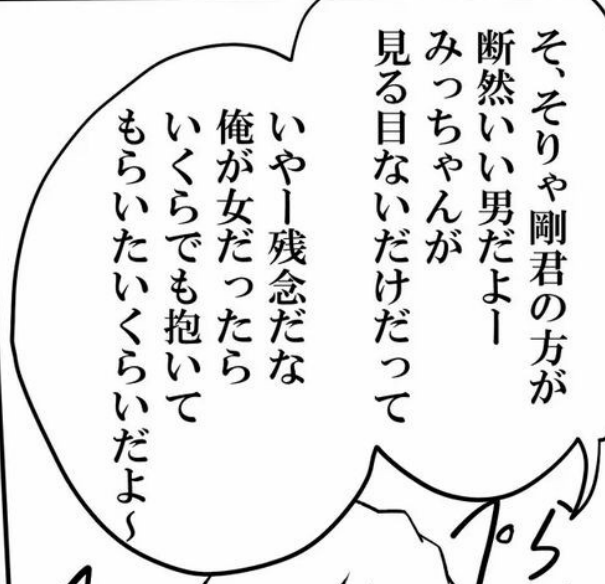 そ、そりゃ剛君の方が
断然いい男だよー
みっちゃんが
見る目ないだけだって
いやー残念だな
俺が女だったら
いくらでも抱いて
もらいたいくらいだよ～